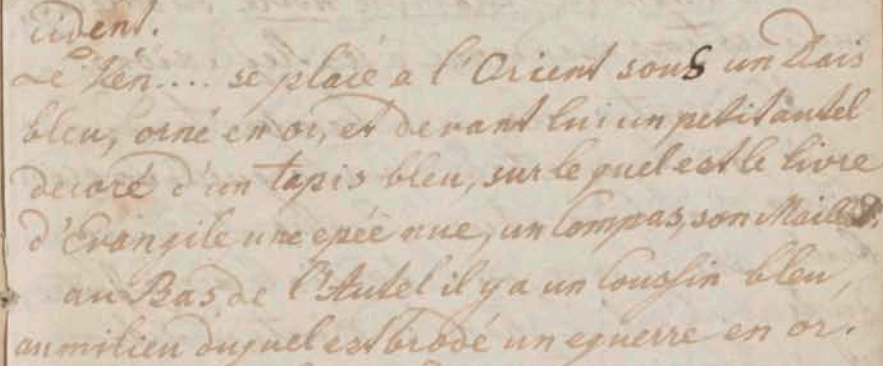 cident.
Le Vén.... se place a l'Orient sous un Dais
bleu, orné en or, et devant lui un petit autel
decoré d'un tapis bleu, sur le quel est le livre
d'Evangile une epée nue, un Compas, son Maillet.
au Bas de l'Autel il y a un Coussin bleu,
au milieu duquel est brodé un equerre en or.